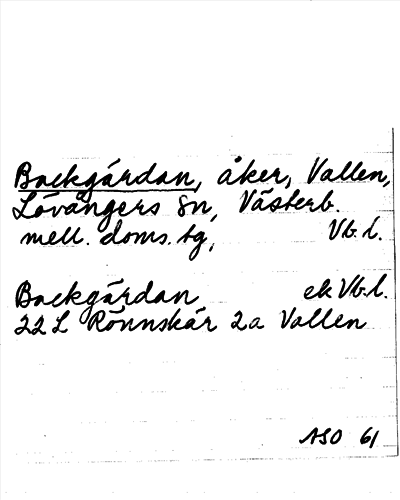 Backgárdan, åker, Vallen,
Lövångers sn, Västerb.
mell. doms. tg, Vb. l.
Backgárdan ek Vb. l.
22 L Rönnskär 2a Vallen
ASO 61